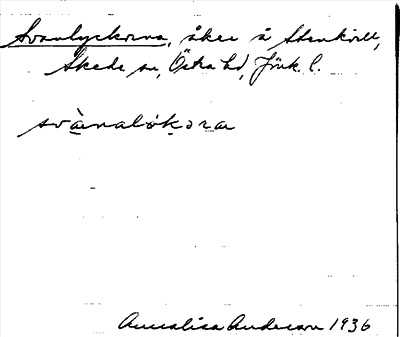 Svanlyckorna, åker å Stenkull,
Skede sn, Östra hd, Jönk. l.
svànalök​ərar
Annalisa Anderson 1936